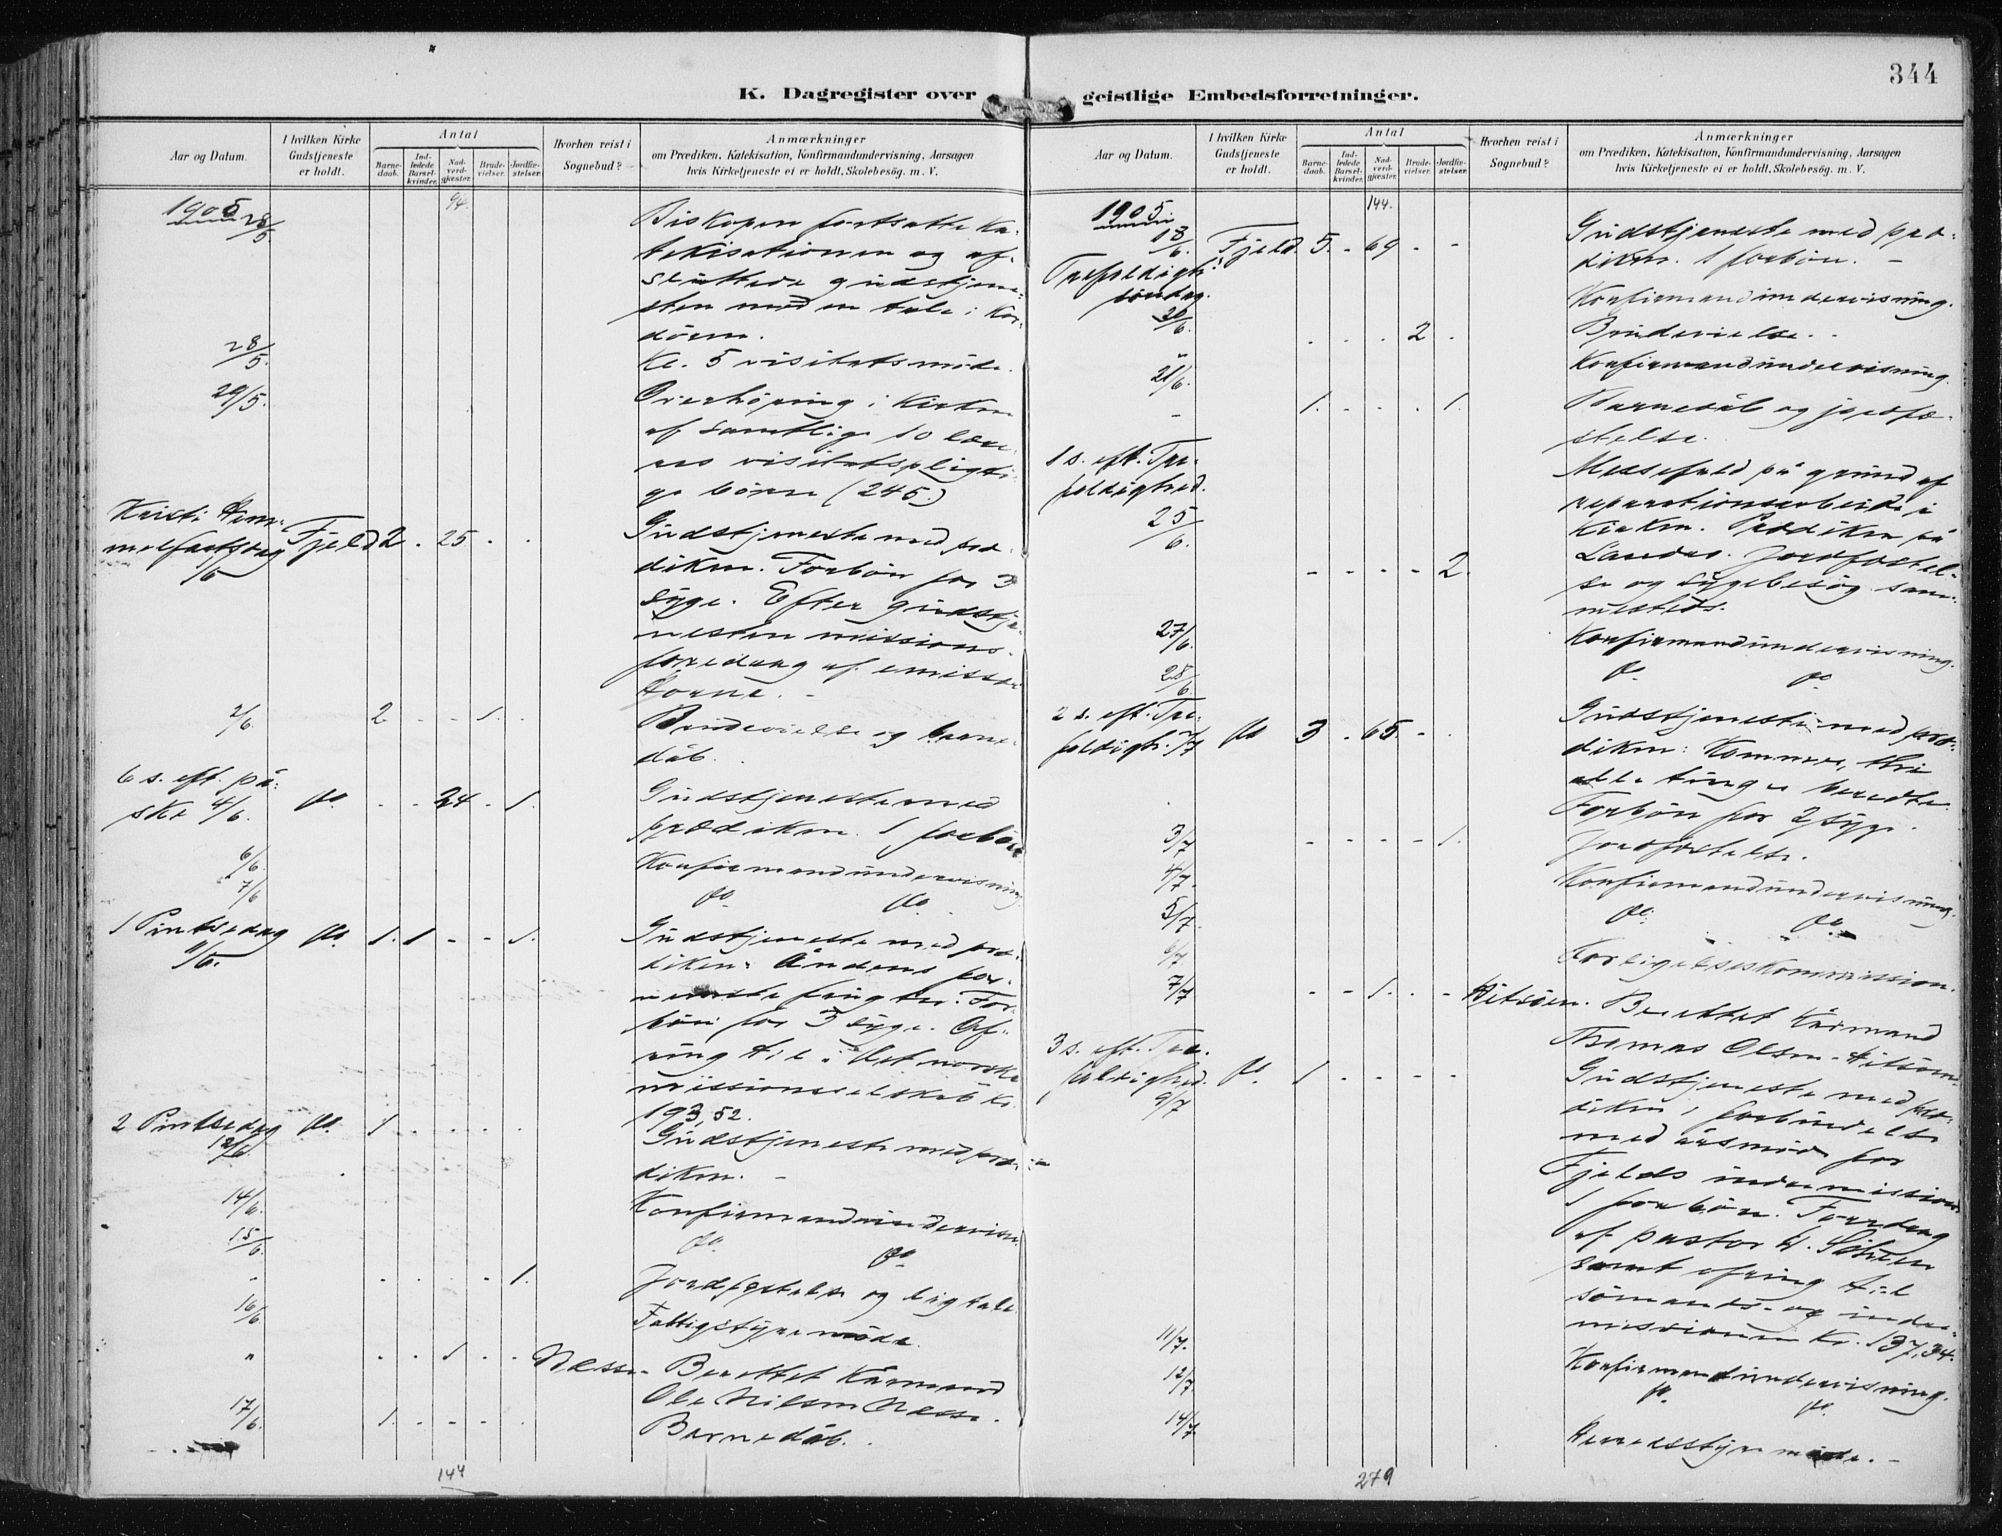 344
K. Dagregister over geistlige Embedsforretninger.
Aar og Datum.
I hvilken Kirke Gudstjeneste er holdt.
Antal
Barne-daab.
Ind-ledede Barsel-kvinder.
Nad-verd-gjæster.
Brude-vielser.
Jordfæ-stelser.
Hvorhen reist i Sognebud?
Anmærkninger
om Prædiken, Katekisation, Konfirmandundervisning, Aarsagen
hvis Kirketjeneste ei er holdt, Skolebesøg. m. V.
94.
1905 28/5. Biskopen fortsatte ka-
tekisationen og af-
sluttede gudstjene-
sten med en tale i kor-
døren.
28/5. Kl. 5 visitatsmøde.
29/5. Overhøring i kirken
af samtlige 10 læse-
res visitatspligti-
ge børn (245.)
Kristi Him-
melfartsdag 1/6 Fjeld 2. - 25 - . Gudstjeneste med præ-
diken. Forbøn for 3
syge. Efter gudstje-
nesten missions-
foredrag af emissæ-
rerne. -
2/6. 2 - - 1. - Brudevielse og barne-
dåb.
6 s. eft. på-
ske 4/6. do. - - 24 - 1. Gudstjeneste med
prædiken. 1 forbøn
6/6. Konfirmandundervisning
7/6 do. do.
1 Pintsedag
11/6. do. 1. 1 - - 1. Gudstjeneste med præ-
diken: Åndens for-
nemste frugter. For-
bøn for 3 syge. Of-
ring til det norske
missionsselskab kr.
193,52.
2 Pintsedag
12/6. do. 1 - - - - Gudstjeneste med præ-
diken. -
14/6. Konfirmandundervisn.
15/6. do. do.
- - - - - 1. Jordfæstelse og ligtale
16/6 Fattigstyremøde.
" - - 1 - - Næsse. Berettet kårmand
Ole Nilsen Næsse.
17/6. 1. - - - - Barnedåb.
144
Aar og Datum.
I hvilken Kirke Gudstjeneste er holdt.
Antal
Barne-daab.
Ind-ledede Barsel-kvinder.
Nad-verd-gjæster.
Brude-vielser.
Jordfæ-stelser.
Hvorhen reist i Sognebud?
Anmærkninger
om Prædiken, Katekisation, Konfirmandundervisning, Aarsagen
hvis Kirketjeneste ei er holdt, Skolebesøg. m. V.
144.
1905
18/6. Fjeld. 5. - 69 - - Gudstjeneste med præ-
diken. 1 forbøn. -
Trefoldigh.
søndag.
Konfirmandundervisning.
20/6.
" . . . 2 . Brudevielse. -
21/6. Konfirmandundervisning.
- 1. - - - 1. Barnedåb og jordfæ-
stelse.
1 s. eft. Tre-
foldighed.
25/6. Messefald på grund af
reparationsarbeide i
kirken. Prædiken på
Landro. Jordfæstel-
- - - - 2. se og sygebesøg sam-
mesteds.
27/6. Konfirmandundervisning.
28/6. do. do
2 s. eft. Tre-
foldigh. 2/7 do 3 - 65 - - Gudstjeneste med præ-
diken: Kommer, thi
alle ting er beredte.
Forbøn for 2 syge.
3/7 - - - - 1. Jordfæstelse.
4/7. Konfirmandundervisning.
5/7. do. do.
6/7 Forligelseskommission.
7/7 - - 1. - - Bitsöen. Berettet kårmand
Thomas Olsen
3 s. eft. Tre-
foldighed.
9/7 do. 1 - - - - Gudstjeneste med præ-
diken i forbindelse
med årsmøde for
Fjelds indremission
1 forbøn. Foredrag
af pastor H.
samt ofring til
sømands- og indre-
missionen kr. 137,34.
11/7. Konfirmandundervisning.
12/7. do. do.
14/7 Herredsstyremøde. -
279